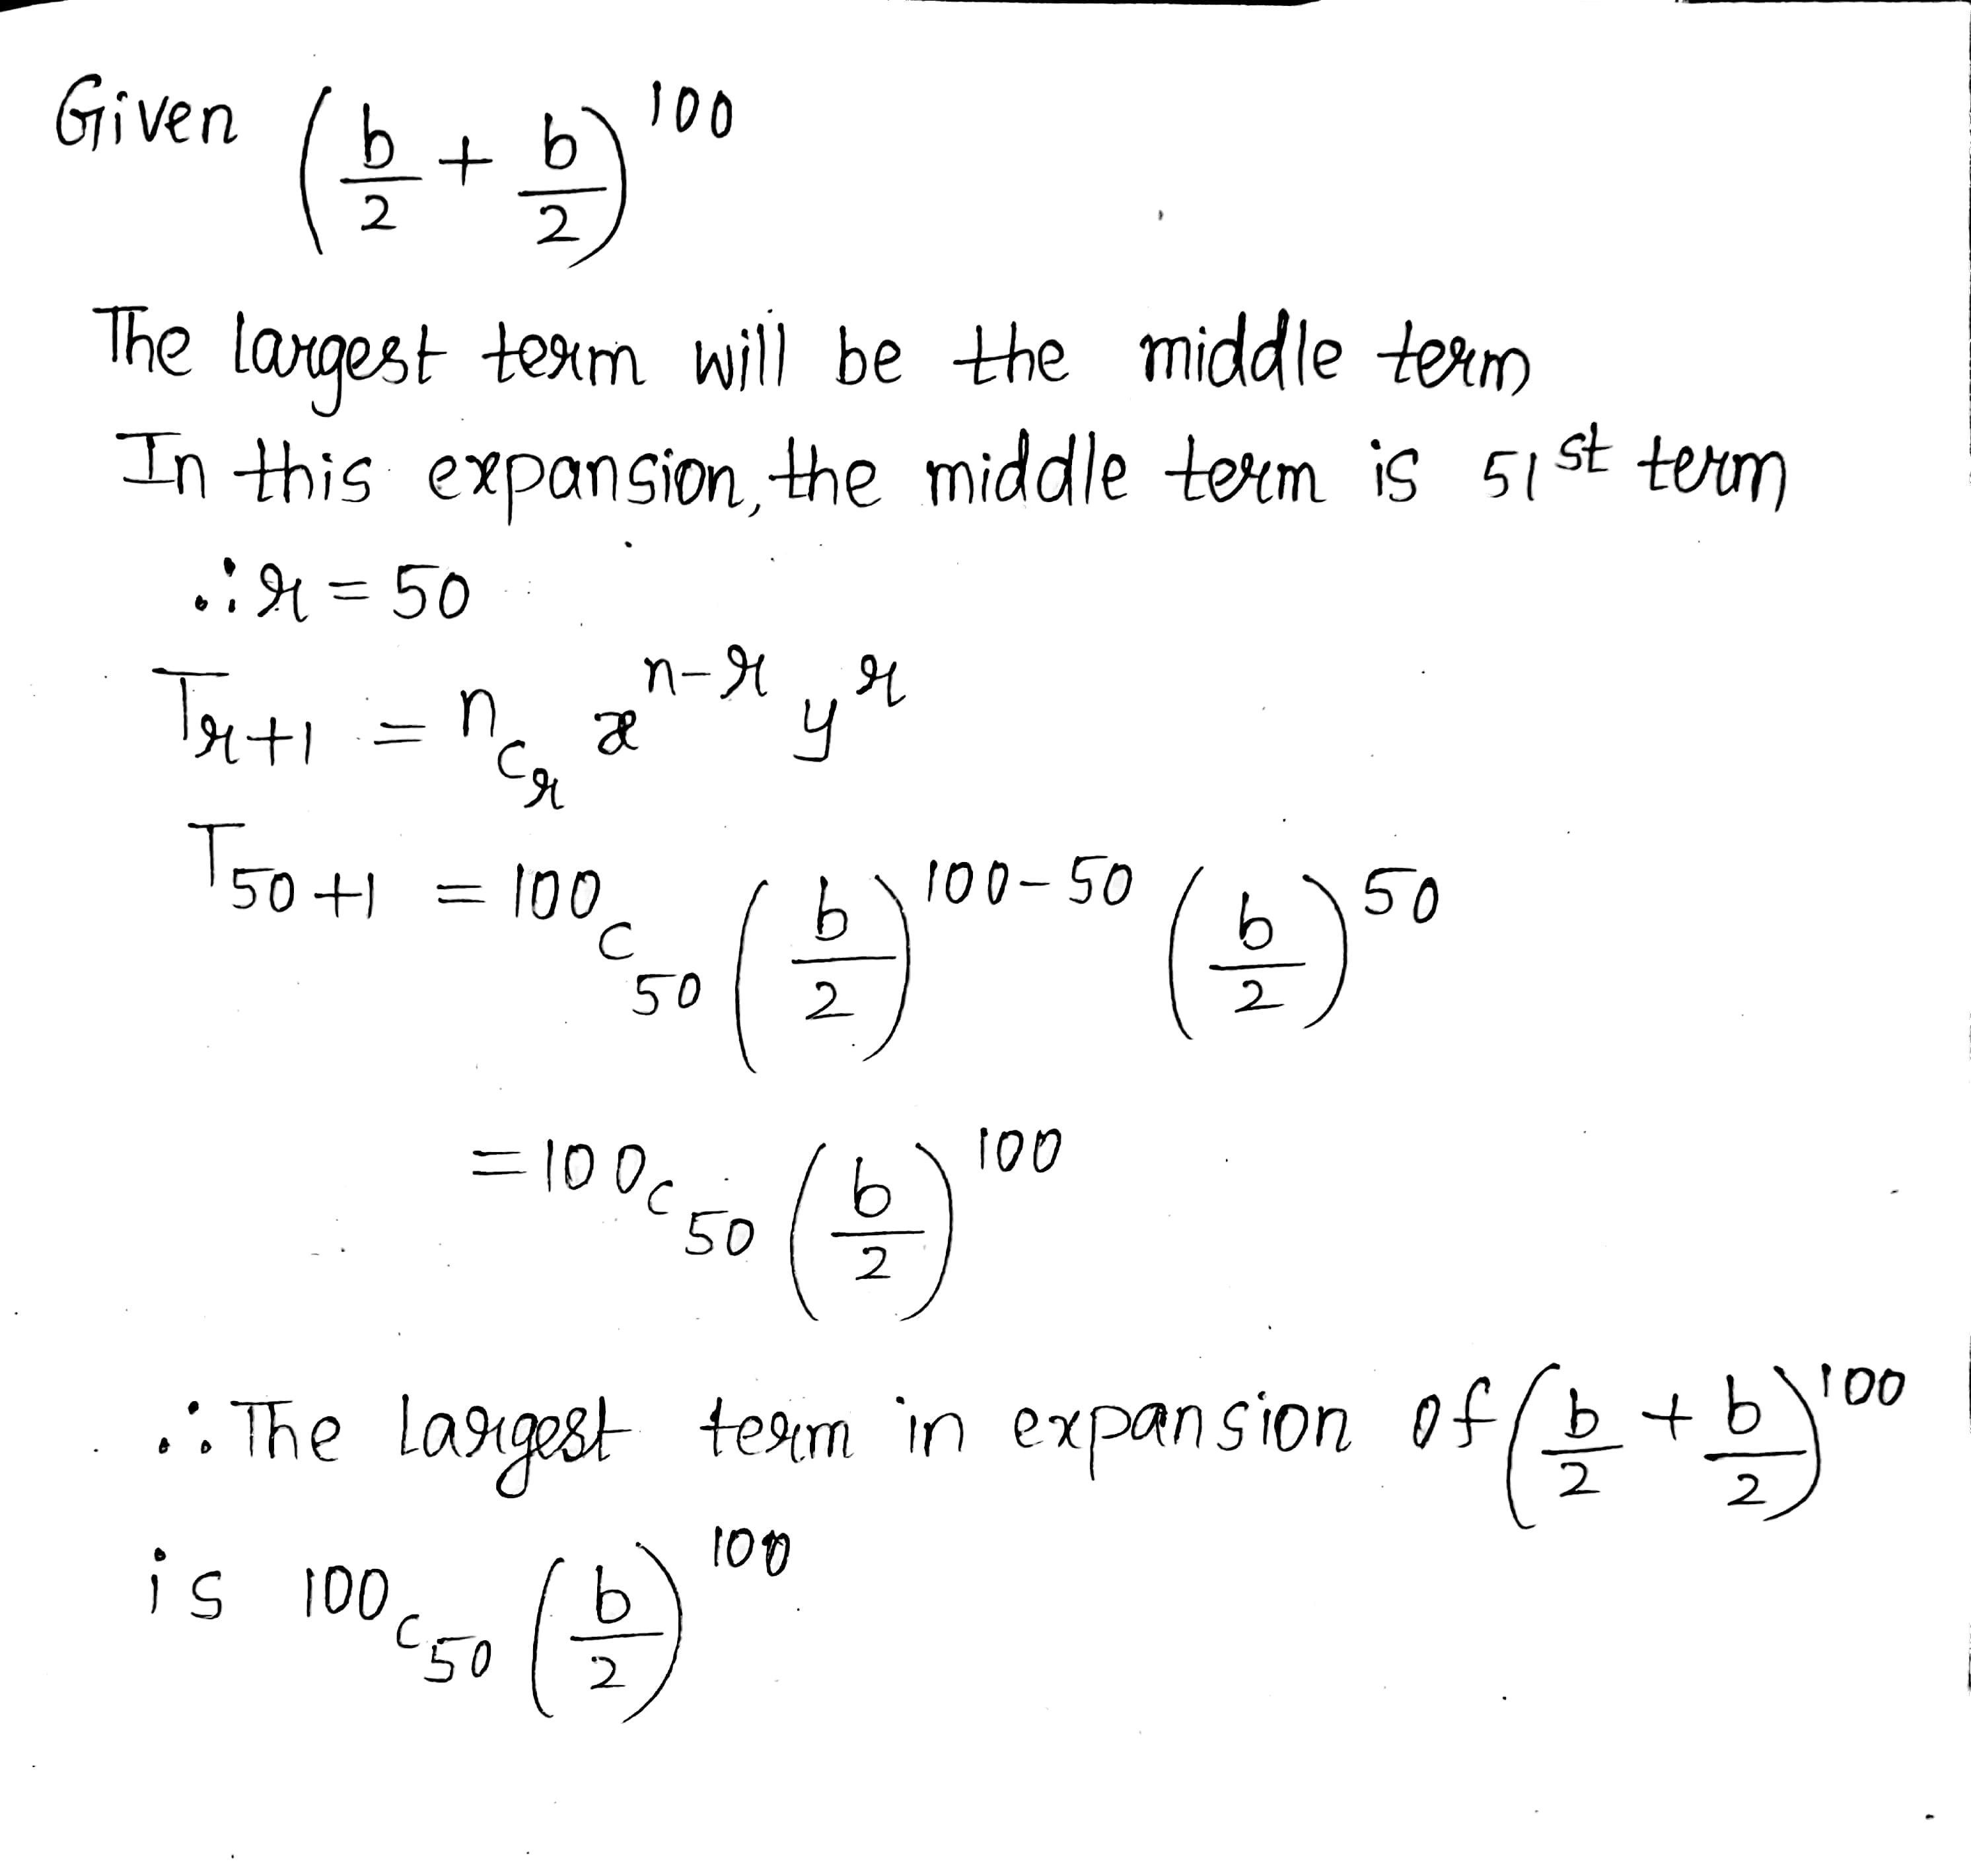 Given (b/2 + b/2)^100
The largest term will be the middle term
In this expansion, the middle term is 51st term
∴ r = 50
T_{r+1} = n_{C_r} x^{n-r} y^r
T_{50+1} = 100_{C_50} (b/2)^{100-50} (b/2)^{50}
= 100_{C_50} (b/2)^{100}
∴ The largest term in expansion of (b/2 + b/2)^100
is 100_{C_50} (b/2)^100